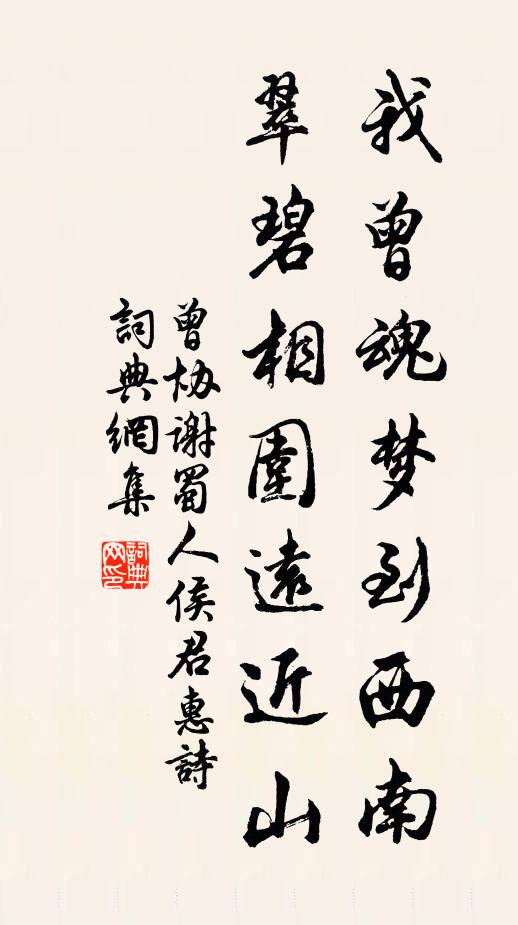 我曾魂梦到西南
翠碧相圍遠近山
曾協謝蜀人侯君惠詩
詞典網集
詞典网印